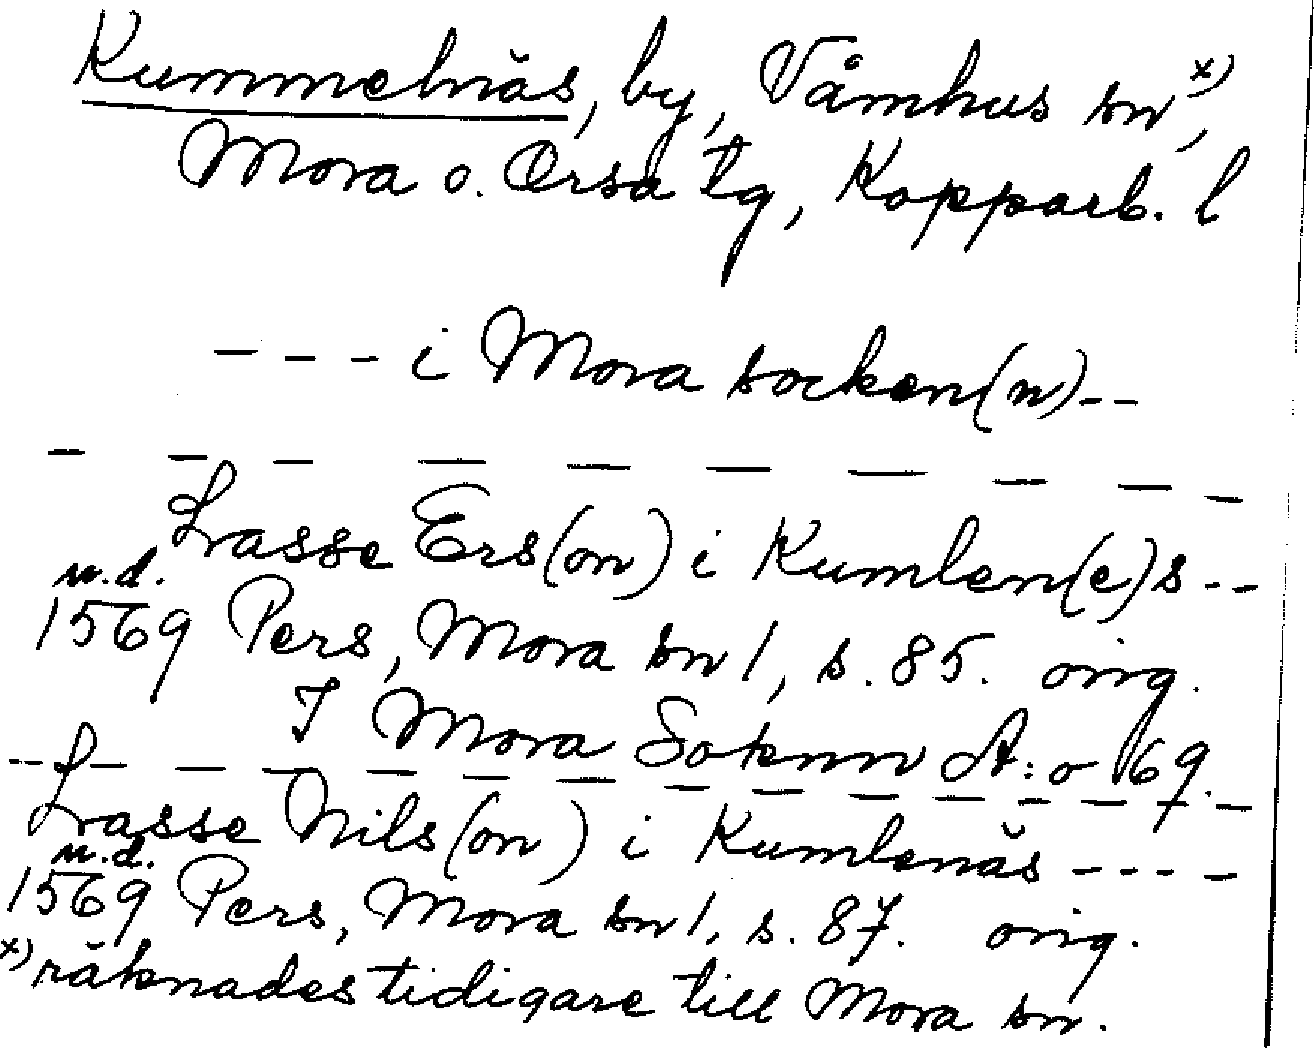 Kummelnäs, by, Våmhus sn x),
Mora o. Orsa tg, Kopparb. l
- - - i Mora socken(n) - -
- - - - - - - - - -
Lasse Ers(on) i Kumlen(e)s - -
u.d.
1569 Pers, Mora sn 1, s. 85. orig.
I Mora Sokenn A:o 69.
- - - - - - - - - - - - - - -
Lasse Nils(on) i Kumlenäs - - - - -
u.d.
1569 Pers, Mora sn 1, s. 87. orig.
x) räknades tidigare till Mora sn.